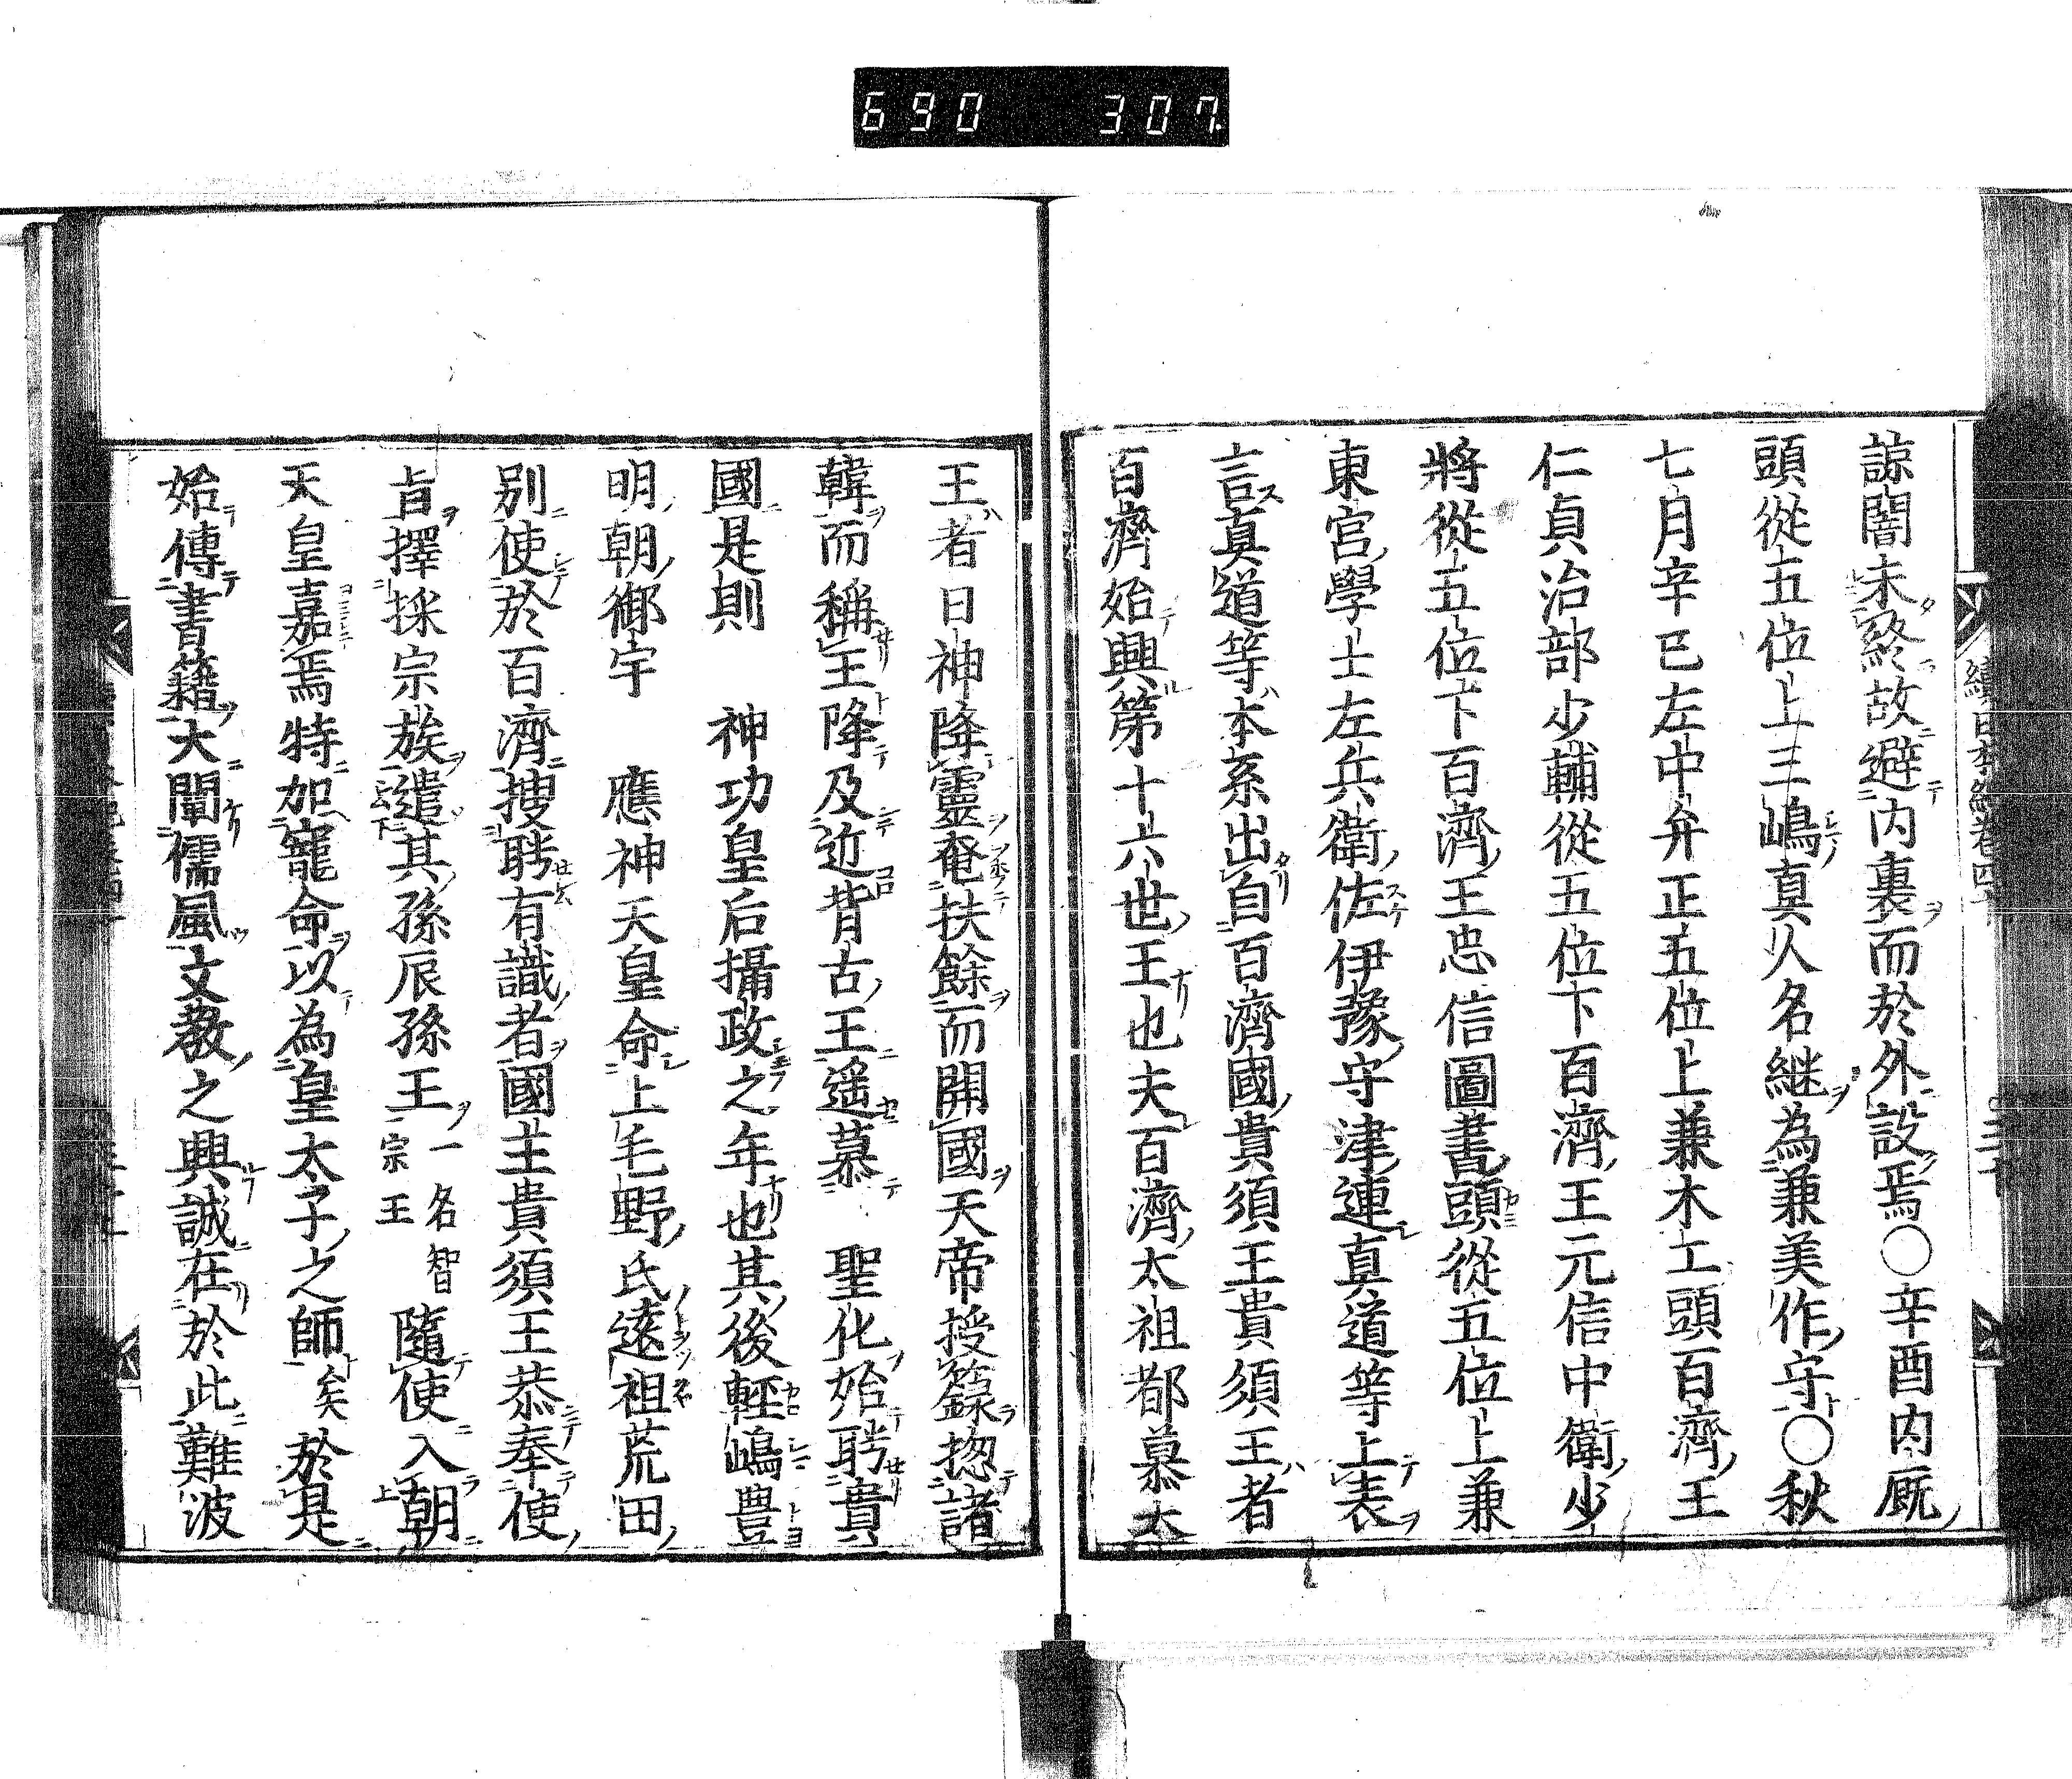 690 307
諒闇未終故避内裏而於外設焉○辛酉内厩
頭從五位上三嶋真人名継為兼美作守○秋
七月辛巳左中弁正五位上兼木工頭百濟王
仁貞治部少輔從五位下百濟王元信中衛少
將從五位下百濟王忠信圖書頭從五位上兼
東宮學士左兵衛佐伊豫守津連真道等上表
言真道等本系出自百濟國貴須王貴須王者
百濟始興第十六世王也夫百濟太祖都慕大
王者日神降靈奄扶餘而開國天帝授籙揔諸
韓而稱王降及近肖古王遥慕 聖化始聘貴
國是則 神功皇后攝政之年也其後輕嶋豊
明朝御宇 應神天皇命上毛野氏遠祖荒田
别使於百濟搜聘有識者國主貴須王恭奉使
旨擇採宗族遣其孫辰孫王一名智宗王隨使入朝
天皇嘉焉特加寵命以為皇太子之師矣於是
始傳書籍大闡儒風文教之興誠在於此難波